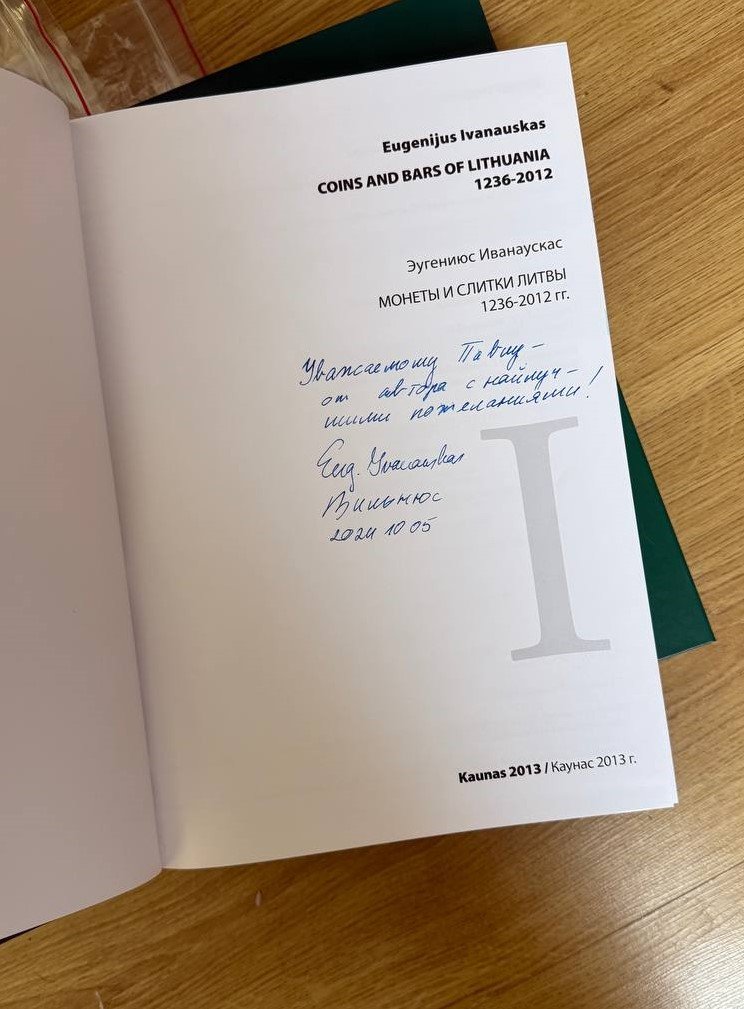 Eugenijus Ivanauskas
COINS AND BARS OF LITHUANIA
1236-2012
Эугениюс Иванаускас
МОНЕТЫ И СЛИТКИ ЛИТВЫ
1236-2012 гг.
Уважаемому
от автора с найлуч-
шими пожеланиями!
Eug. Ivanauskas
Вильнюс
2024 10 05
I
Kaunas 2013 / Каунас 2013 г.